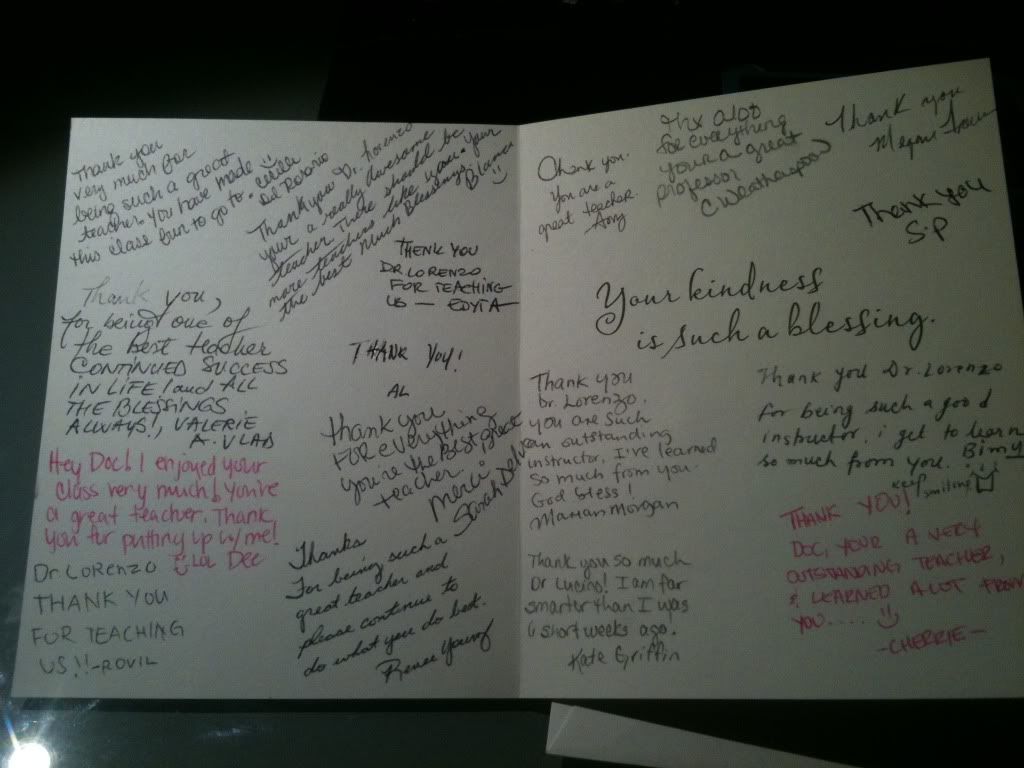 Thank you
very much for
being such a great
teacher. You have made
this class fun to go to.
del Rosario
Thank you Dr. Lorenzo
your a really awesome
teacher There should be
more teachers like you. Your
the best Much Blessings!
THENK YOU
DR LORENZO
FOR TEACHING
US — EDYTA
Thank you,
for being one of
the best teacher
CONTINUED SUCCESS
IN LIFE! and ALL
THE BLESSINGS
ALWAYS!, VALERIE
A. VLAD
THANK YOU!
AL
thank you
FOR EVERYTHING
you're the Best Great
teacher
Merci
Sarah
Hey Doc! I enjoyed your
class very much! You're
a great teacher. Thank
you for putting up w/me!
Dee
Dr. LORENZO
THANK YOU
FOR TEACHING
US!! -ROVIL
Thanks
For being such a
great teacher and
please continue to
do what you do best.
Renee Young
Thank you.
You are a
great teacher
Amy
Thx alot
for everything
your a great
professor
C Weatherspoon
Thank you
Megan
Thank you
S.P
Your kindness
is such a blessing.
Thank you
Dr. Lorenzo,
you are such
an outstanding
instructor, I've learned
so much from you.
God bless!
Marian Morgan
Thank you Dr. Lorenzo
for being such a good
instructor, i get to learn
so much from you. Bimy
keep smiling
Thank you so much
Dr Lucino! I am far
smarter than I was
6 short weeks ago.
Kate Griffin
THANK YOU!
DOC, YOUR A VERY
OUTSTANDING TEACHER,
I LEARNED A LOT FROM
YOU.....
-CHERRIE-